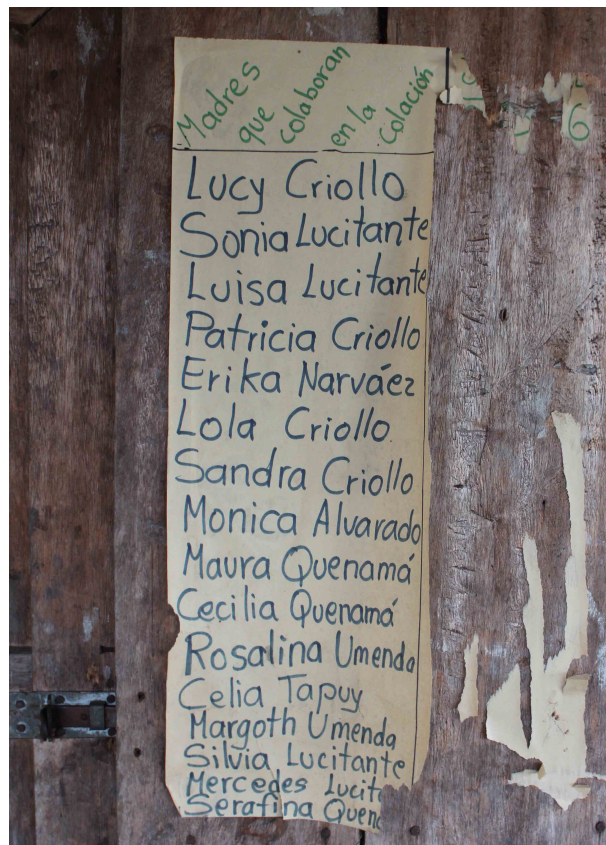 Madres que colaboran en la Colación
Lucy Criollo
Sonia Lucitante
Luisa Lucitante
Patricia Criollo
Erika Narváez
Lola Criollo
Sandra Criollo
Monica Alvarado
Maura Quenamá
Cecilia Quenamá
Rosalina Umenda
Celia Tapuy
Margoth Umenda
Silvia Lucitante
Mercedes
Serafina
6